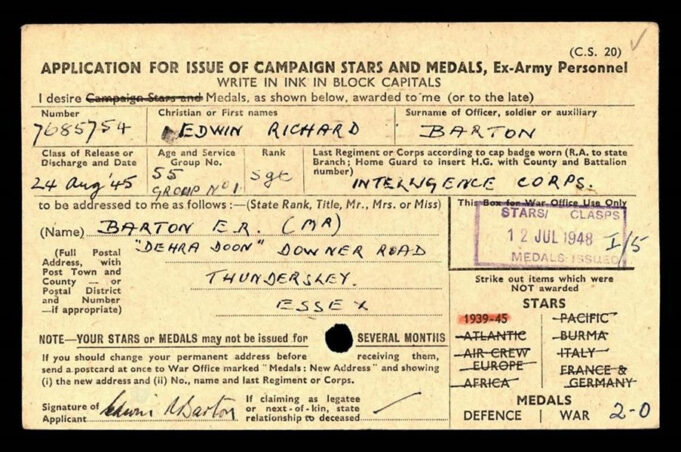 (C.S. 20)
APPLICATION FOR ISSUE OF CAMPAIGN STARS AND MEDALS, Ex-Army Personnel
WRITE IN INK IN BLOCK CAPITALS
I desire Campaign Stars and Medals, as shown below, awarded to me (or to the late)
Number Christian or First names Surname of Officer, soldier or auxiliary
7685754 EDWIN RICHARD BARTON
Class of Release or Discharge and Date Age and Service Group No. Rank Last Regiment or Corps according to cap badge worn (R.A. to state Branch; Home Guard to insert H.G. with County and Battalion number)
24 Aug '45 55 GROUP NO 1 Sgt INTELLIGENCE CORPS.
to be addressed to me as follows :—(State Rank, Title, Mr., Mrs. or Miss)
This Box for War Office Use Only
(Name) BARTON E.R. (MR)
STARS/ CLASPS
12 JUL 1948 I/5
MEDALS ISSUED
(Full Postal Address, with Post Town and County — or Postal District and Number —if appropriate)
"DEHRA DOON" DOWNER ROAD
THUNDERSLEY.
ESSEX
Strike out items which were NOT awarded
STARS
1939-45 PACIFIC
ATLANTIC BURMA
AIR CREW EUROPE ITALY
AFRICA FRANCE & GERMANY
MEDALS
DEFENCE WAR 2-0
NOTE—YOUR STARS or MEDALS may not be issued for SEVERAL MONTHS
If you should change your permanent address before receiving them,
send a postcard at once to War Office marked "Medals: New Address" and showing
(i) the new address and (ii) No., name and last Regiment or Corps.
Signature of Applicant Edwin R Barton
If claiming as legatee or next-of-kin, state relationship to deceased